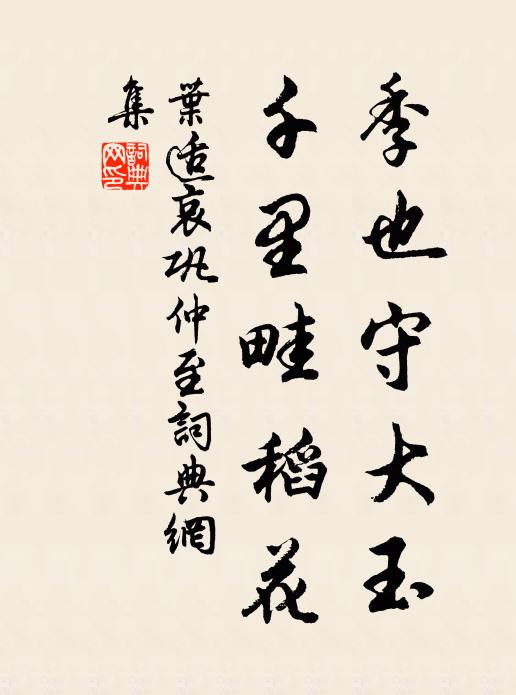 季也守大玉
千里畦稻花
葉适哀巩仲至詞典網
集
詞典網印